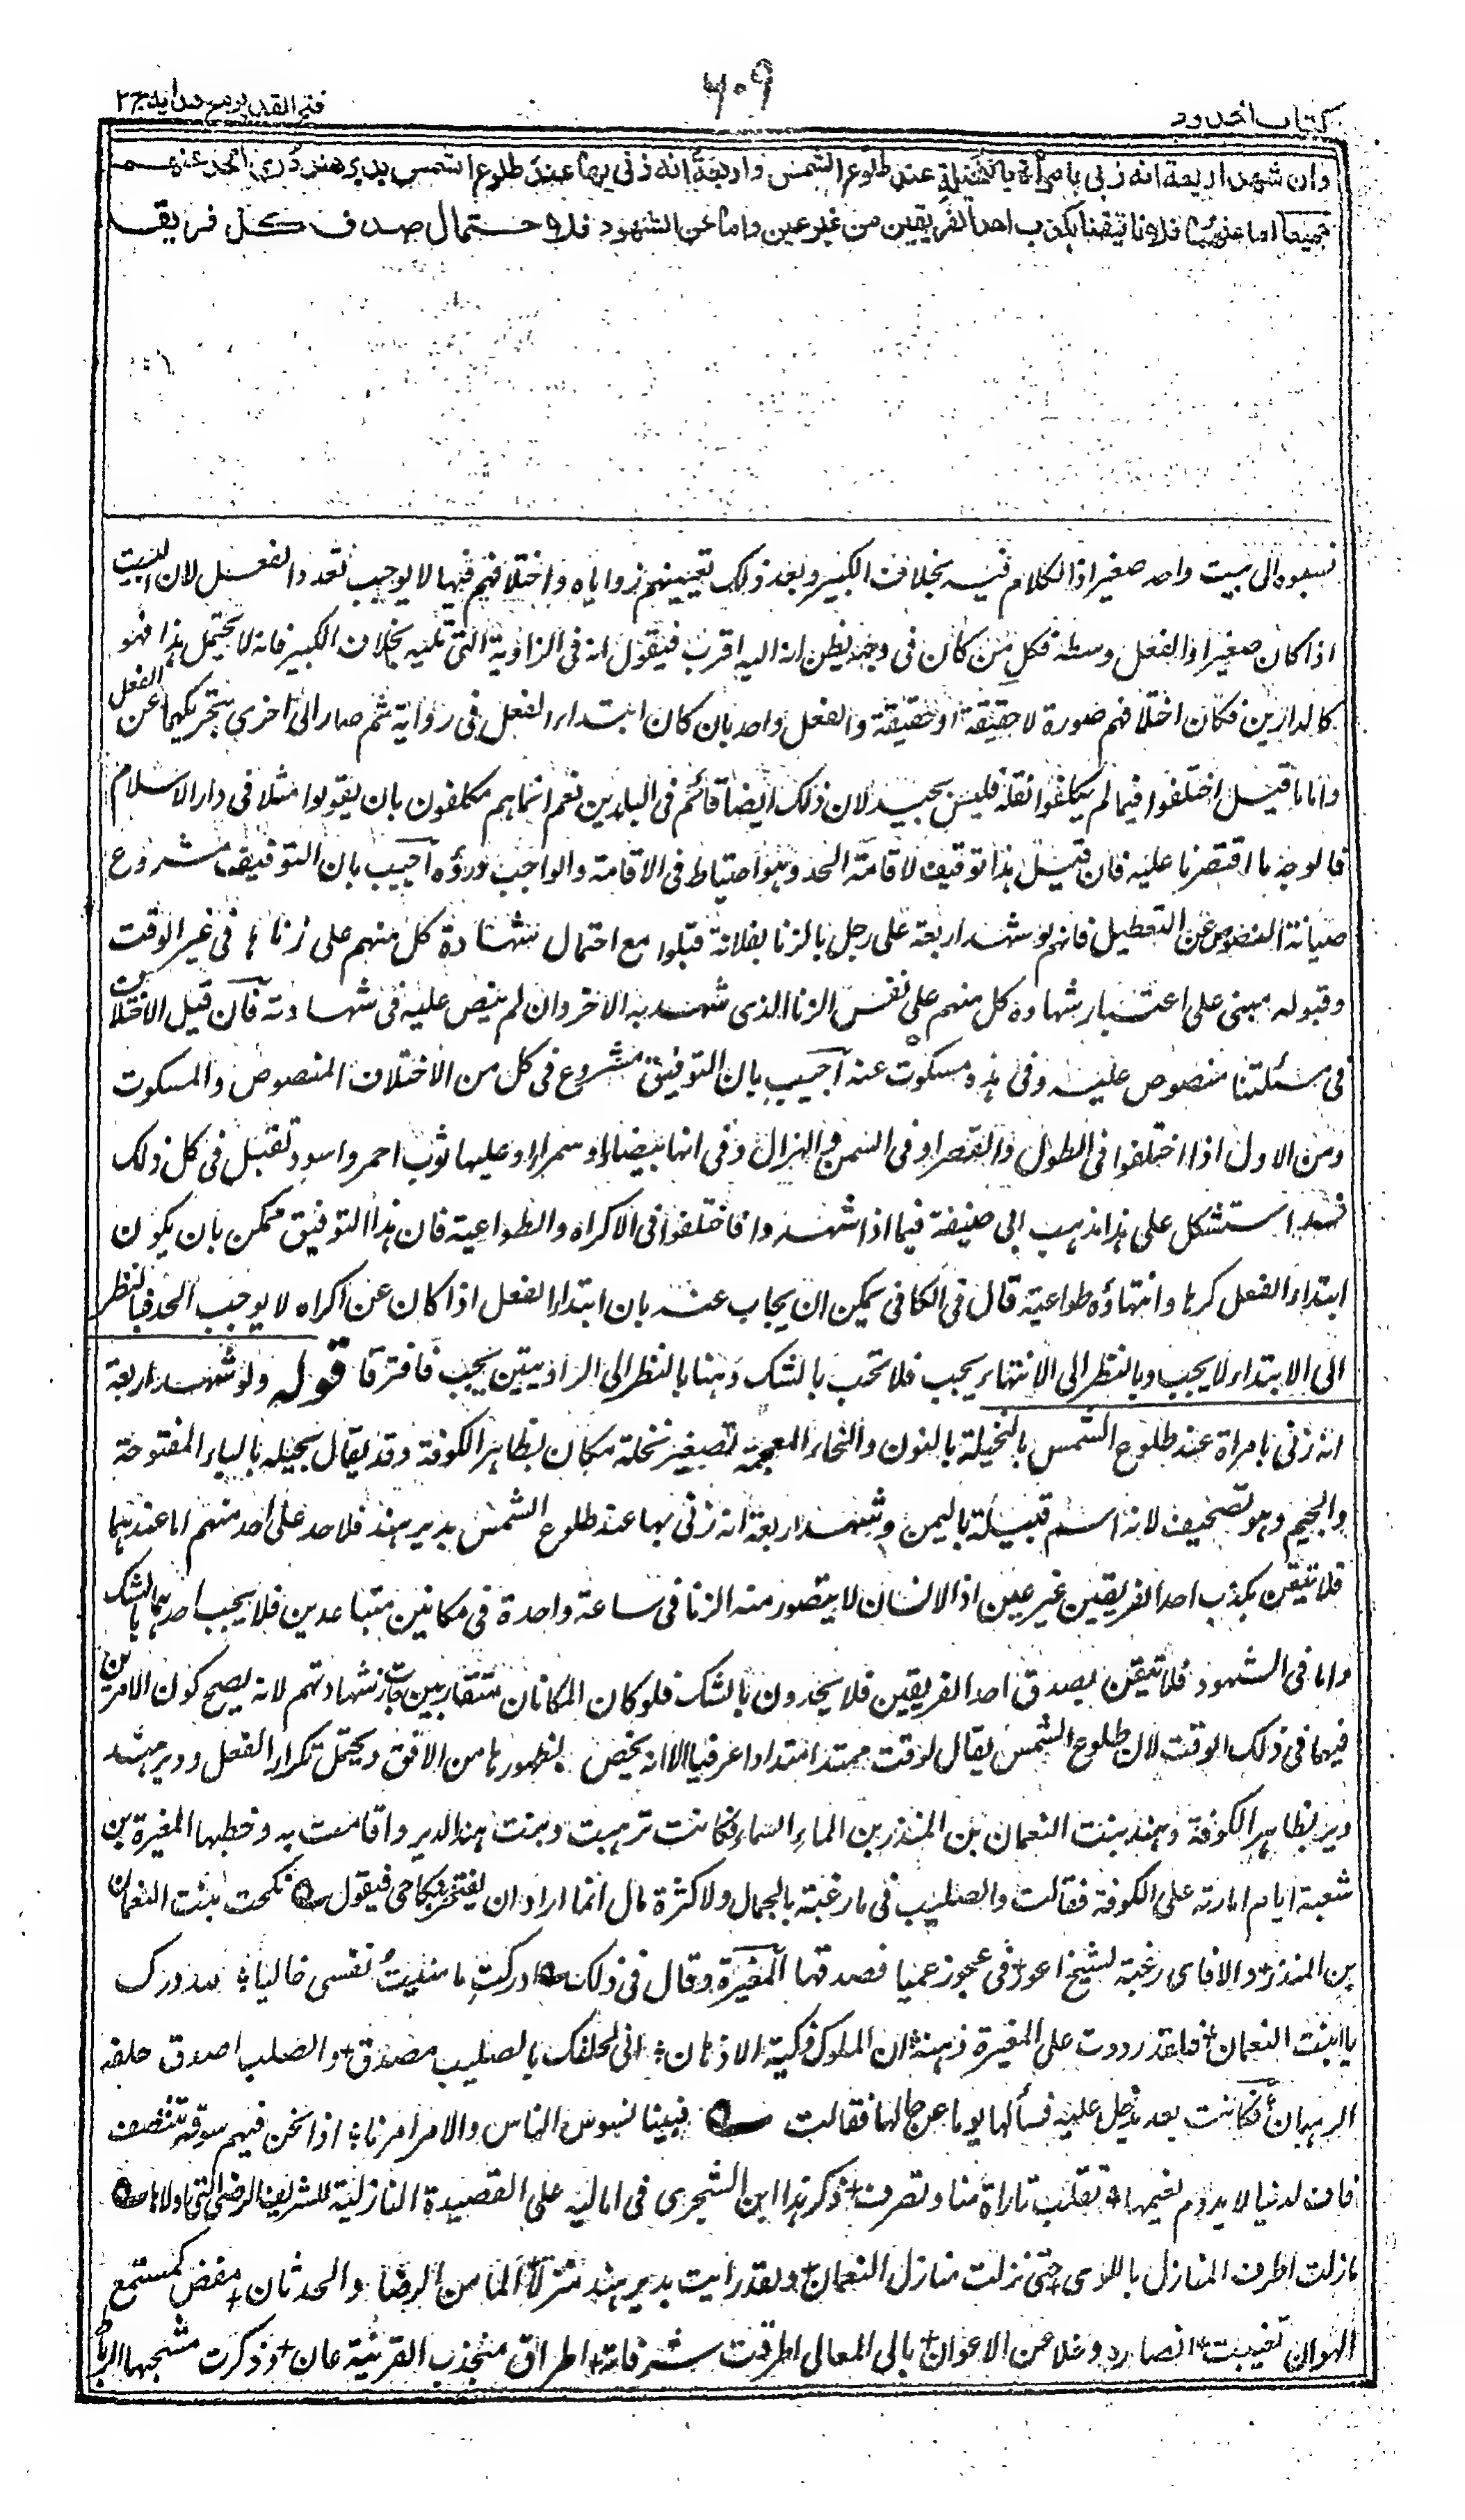 كتاب الحدود
٦٠٩
فتح القدير مع هدايه ج٢
وان شهد اربعة انه زنى بامرأة بالنخيلة عند طلوع الشمس واربعة انه زنى بها عند طلوع الشمس بدير هند درئ الحد عنهم
جميعا اما عنهما فلانا تيقنا بكذب احد الفريقين من غير عين واما عن الشهود فلاحتمال صدق كل فريق
نسبوه الى بيت واحد صغير اذ الكلام فيه بخلاف الكبير وبعد ذلك تعيينهم زواياه واختلافهم فيها لا يوجب تعدد الفعل لان البيت
اذا كان صغيرا والفعل وسطه فكل من كان فى وجه يظن انه اليه اقرب فيقول انه فى الزاوية التى تليه بخلاف الكبير فانه لا يحتمل هذا فهو
كالدارين فكان اختلافهم صورة لا حقيقة او حقيقة والفعل واحد بان كان ابتداء الفعل فى رواية ثم صار الى اخرى بتحريكهما عن الفعل
واما ما قيل اختلفوا فيما لم يكلفوا نقله فليس بجيد لان ذلك ايضا قائم فى البلدين نعم انما هم مكلفون بان يقولوا مثلا فى دار الاسلام
فالوجه ما اقتصرنا عليه فان قيل هذا توقيف لاقامة الحد وهو احتياط فى الاقامة والواجب درؤه اجيب بان التوفيق مشروع
صيانة النصوص عن التعطيل فانهم لو شهد اربعة على رجل بالزنا بفلانة قبلوا مع احتمال شهادة كل منهم على زناها فى غير الوقت
وقبوله مبنى على اعتبار شهادة كل منهم على نفس الزنا الذى شهد به الاخر وان لم ينص عليه فى شهادته فان قيل الاختلاف
فى مسئلتنا منصوص عليه وفى هذه مسكوت عنه اجيب بان التوفيق مشروع فى كل من الاختلاف المنصوص والمسكوت
ومن الاول اذا اختلفوا فى الطول والقصر او فى السمن والهزال وفى انها بيضاء او سمراء او عليها ثوب احمر واسود تقبل فى كل ذلك
استشكل على هذا مذهب ابى حنيفة فيما اذا شهدوا فاختلفوا فى الاكراه والطواعية فان هذا التوفيق ممكن بان يكون
ابتداء الفعل كرها وانتهاؤه طواعية قال فى الكافى يمكن ان يجاب عنه بان ابتداء الفعل اذا كان عن اكراه لا يوجب الحد فبالنظر
الى الابتداء لا يجب وبالنظر الى الانتهاء يجب فلا تجب بالشك وهنا بالنظر الى الزاويتين يجب فافترقا قوله ولو شهد اربعة
انه زنى بامراة عند طلوع الشمس بالنخيلة بالنون والخاء المعجمة تصغير نخلة مكان بظاهر الكوفة وقد يقال بجيله بالباء المفتوحة
والجيم وهو تصحيف لانه اسم قبيلة باليمن وشهد اربعة انه زنى بها عند طلوع الشمس بدير هند فلا حد على احد منهم اما عندهما
فلا تيقن بكذب احد الفريقين غير عين اذ الانسان لا يتصور منه الزنا فى ساعة واحدة فى مكانين متباعدين فلا يجب احدهما بالشك
واما فى الشهود فلا تيقن بصدق احد الفريقين فلا يحدون بالشك فلو كان المكانان متقاربين جازت شهادتهم لانه يصح كون الامرين
فيهما فى ذلك الوقت لان طلوع الشمس يقال لوقت ممتد امتدادا عرفيا لا انه يخص بظهورها من الافق ويحتمل تكرار الفعل ودير هند
دير بظاهر الكوفة وهند بنت النعمان بن المنذر بن الماء السماء كانت ترهبت وبنت هند الدير واقامت به وخطبها المغيرة بن
شعبة ايام امارته على الكوفة فقالت والصليب فى ما رغبة بالجمال ولا كثرة مال انما اراد ان يفتخر بنكاحى فيقول نكحت بنت النعمان
بن المنذر والا فاى رغبة لشيخ اعور فى عجوز عميا فصدقها المغيرة وقال فى ذلك ادركت ما منيت نفسى خاليا لله درك
يا ابنت النعمان فلقد رددت على المغيرة ذهنه ان الملوك ذكية الاذهان انى لحلفك بالصليب مصدق والصلب اصدق حلفه
الرهبان فكانت بعد تدخل عليه فسألها يوما عن حالها فقالت فبينا نسوس الناس والامر امرنا اذا نحن فيهم سوقة نتنصف
فاف لدنيا لا يدوم نعيمها تقلب تاراة منا وتصرف ذكر هذا ابن الشجرى فى اماليه على القصيدة النازلية للشريف الرضى التى اولها
مازلت اطرف المنازل باللوى حتى نزلت منازل النعمان ولقد رايت بدير هند منزلا الما من الضراء والحدثان مغض كمستمع
الهوان تغيبت انصاره وخلا عن الاعوان بالى المعالى اطرقت شرفاته اطراق منجذب القرينة عان وذكرت مسحبها الرياط